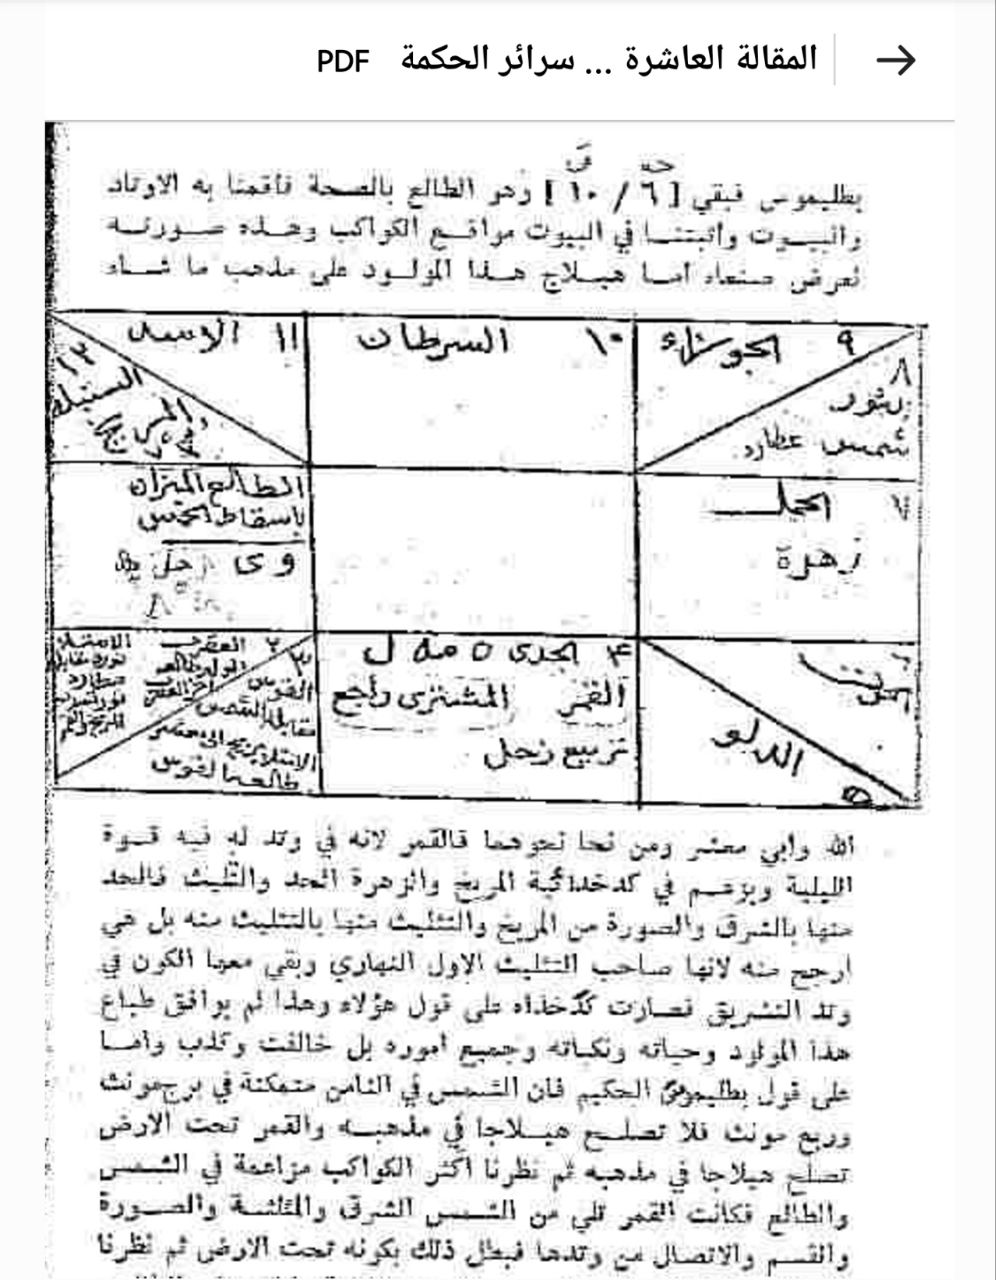 المقالة العاشرة ... سرائر الحكمة PDF
بطليموس فبقي [ ٦ / ١٠ ] وهو الطالع بالصحة فأقمنا به الاوتاد
والبيوت وأثبتنا في البيوت مواقع الكواكب وهذه صورته
لعرض صنعاء أما هيلاج هذا المولود على مذهب ما شاء
٩ الجوزاء
١٠ السرطان
١١ الاسد
٨
الثور
شمس عطارد
١٢
السنبلة
المريخ
٧ الحمل
زهرة
الطالع الميزان
باسقاط الخمس
وى زحل
٢ العقرب
٣
القوس
٤ الجدى
القمر المشترى راجع
تربيع زحل
الدلو
٥
٦
الحوت
الله وأبي معشر ومن نحا نحوهما فالقمر لانه في وتد له فيه قوة
الليلية ويزعم في كدخدائية المريخ والزهرة الحد والتثليث فالحد
منها بالشرق والصورة من المريخ والتثليث منها بالتثليث منه بل هي
ارجح منه لانها صاحب التثليث الاول النهاري وبقي معها الكون في
وتد التشريق فصارت كدخذاه على قول هؤلاء وهذا لم يوافق طباع
هذا المولود وحياته ونكباته وجميع اموره بل خالفت وكذب وأما
على قول بطليموس الحكيم فان الشمس في الثامن متمكنة في برج مونث
وربع مونث فلا تصلح هيلاجا في مذهبه والقمر تحت الارض
تصلح هيلاجا في مذهبه ثم نظرنا اكثر الكواكب مزاعمة في الشمس
والطالع فكانت القمر تلي من الشمس الشرق والمثلثة والصورة
والقسم والاتصال من وتدها فبطل ذلك بكونه تحت الارض ثم نظرنا